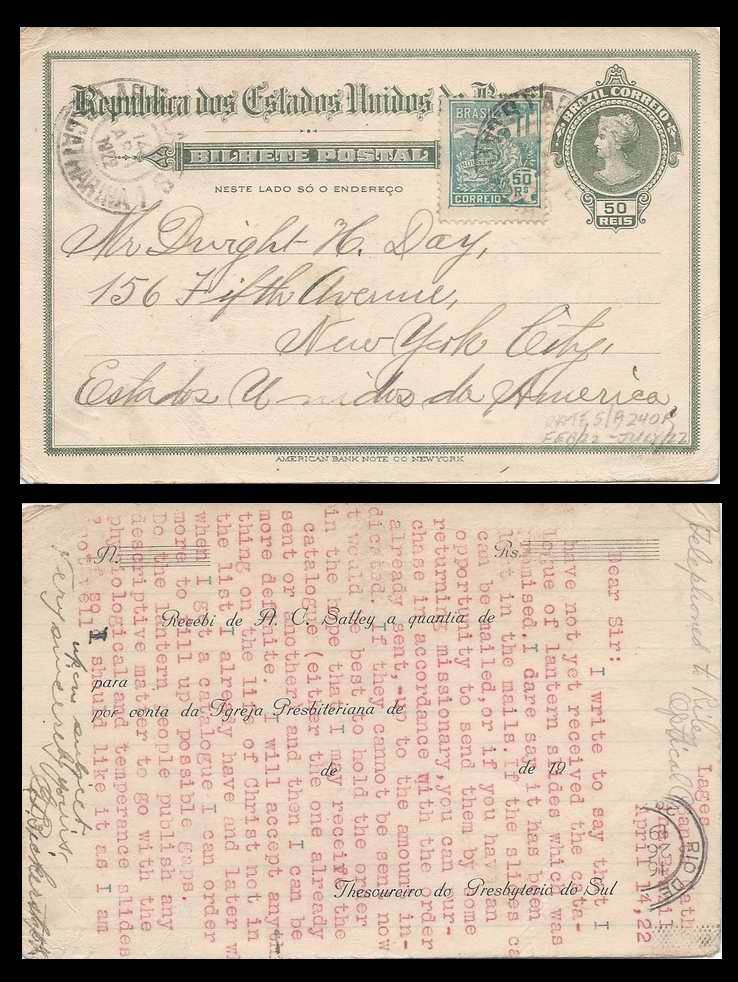 Republica dos Estados Unidos do Brazil
BILHETE POSTAL
NESTE LADO SÓ O ENDEREÇO
BRASIL
50 RS
CORREIO
BRAZIL CORREIO
50
REIS
1922
Mr. Dwight H. Day,
156 Fifth Avenue,
New York City,
Estados Unidos da America
FEB/22 - JULY/22
AMERICAN BANK NOTE CO NEW YORK
N.
Rs.
Recebi de A. C. Salley a quantia de
para
por conta da Igreja Presbiteriana de
de
de 19
Thesoureiro do Presbyterio do Sul
Telephoned to Riley
Optical
Lages
April 14, 22
RIO D
Dear Sir:
I write to say that I
have not yet received the cata-
logue of lantern slides which was
promised. I dare say it has been
lost in the mails. If the slides ca
can be mailed, or if you have an
opportunity to send them by some
returning missionary, you can pur-
chase in accordance with the order
already sent, - up to the amount in-
dicated. If they cannot be sent now
it would be best to hold the order
in the hope that I may receive the
catalogue (either the one already
sent or another) and then I can be
more definite. I will accept any
thing on the life of Christ not in
the list I already have and later w
when I get a catalogue I can order
more to fill up possible gaps.
Do the lantern people publish any
descriptive matter to go with the
physiological and temperance slides
so I should like it as I am
upon subject
Very sincerely yours,